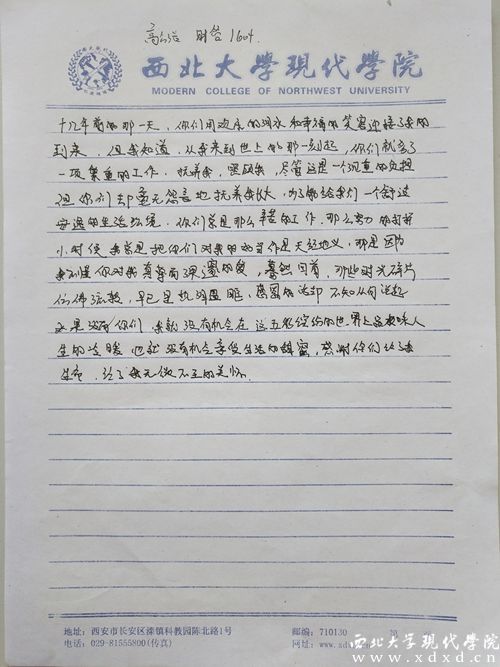 财管1604
西北大学现代学院
MODERN COLLEGE OF NORTHWEST UNIVERSITY
十几年前的那一天,你们用边底的泪水和幸福的笑容迎接了我的
到来,但我知道,从我来到世上的那一刻起,你们就多了
一项繁重的工作,抚养我,照顾我,尽管这是一个沉重的负担
但你们却毫无怨言地抚养我长大,为了给我们一个舒适
安逸的生活环境,你们总是那么辛苦的工作,那么努力的打拼
小时候我总是把你们对我的好当作是天经地义,那是因为
我不懂你对我真挚而深邃的爱,蓦然回首,那些时光碎片
仿佛流散,早已是热泪盈眶,感恩的话却不知从何说起
如果没有你们,我就没有机会在这五彩缤纷的世界上品味人
生的冷暖,也就没有机会享受生活的甜蜜,感谢你们给了我
生命,给了我无微不至的关怀.
地址:西安市长安区滦镇科教园陈北路1号
邮编:710130
第
电话:029-81555800(传真)
网址:www.xd
西北大学现代学院
www.xdxd.cn